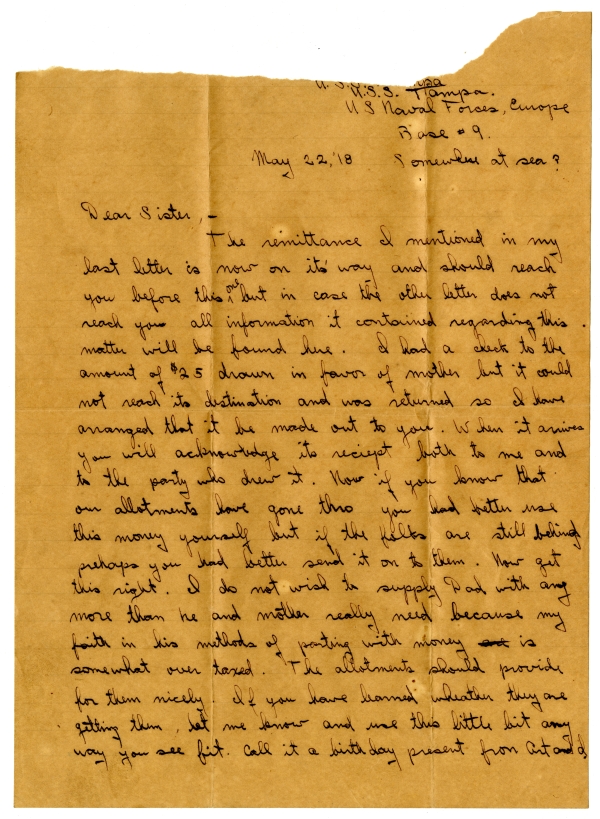 U.S.S. Tampa
U.S.S. Tampa.
US Naval Forces, Europe
Base #9.
May 22, '18 Somewhere at sea?
Dear Sister, -
The remittance I mentioned in my
last letter is now on its' way and should reach
you before this one but in case the other letter does not
reach you all information it contained regarding this
matter will be found here. I had a check to the
amount of $25 drawn in favor of mother but it could
not reach its destination and was returned so I have
arranged that it be made out to you. When it arrives
you will acknowledge its reciept both to me and
to the party who drew it. Now if you know that
our allotments have gone thro you had better use
this money yourself but if the folks are still behind
prehaps you had better send it on to them. Now get
this right. I do not wish to supply Dad with any
more than he and mother really need because my
faith in his methods of parting with money is
somewhat over taxed. The allotments should provide
for them nicely. If you have learned wheather they are
getting them, let me know and use this little bit any
way you see fit. Call it a birthday present from Art and I,